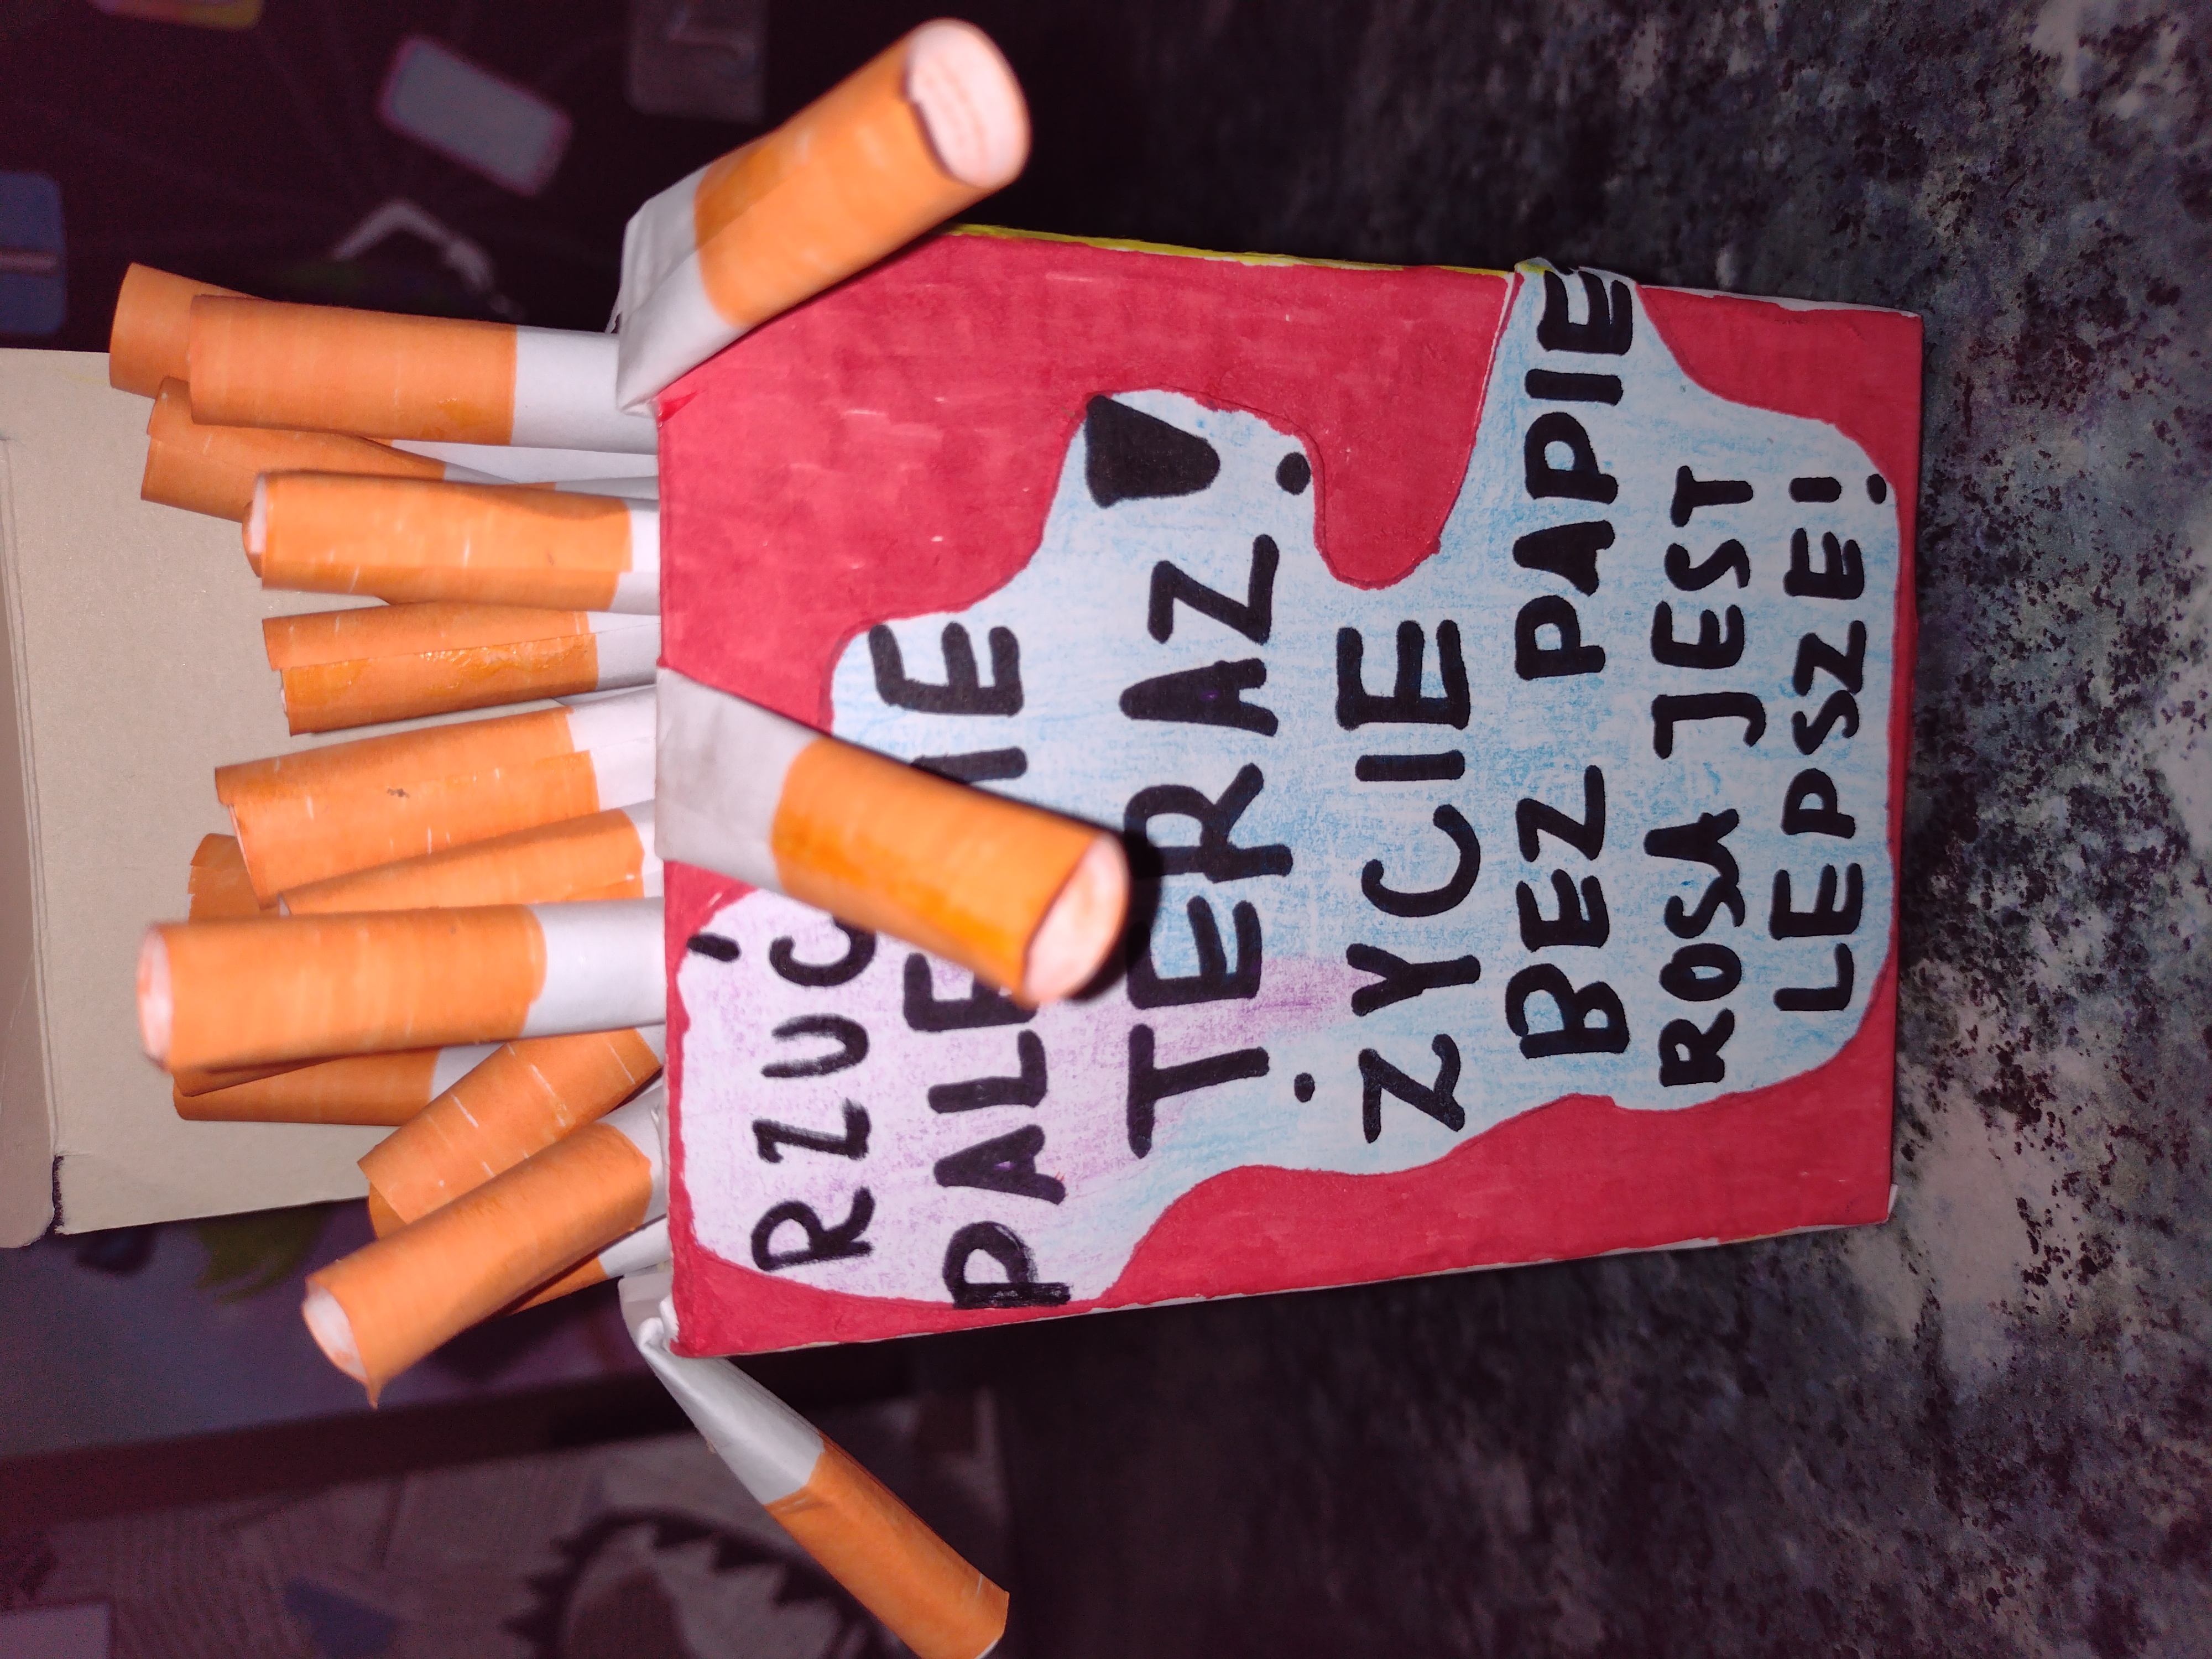 RZUĆ
PALENIE
TERAZ!
ŻYCIE
BEZ PAPIE
ROSA JEST
LEPSZE!